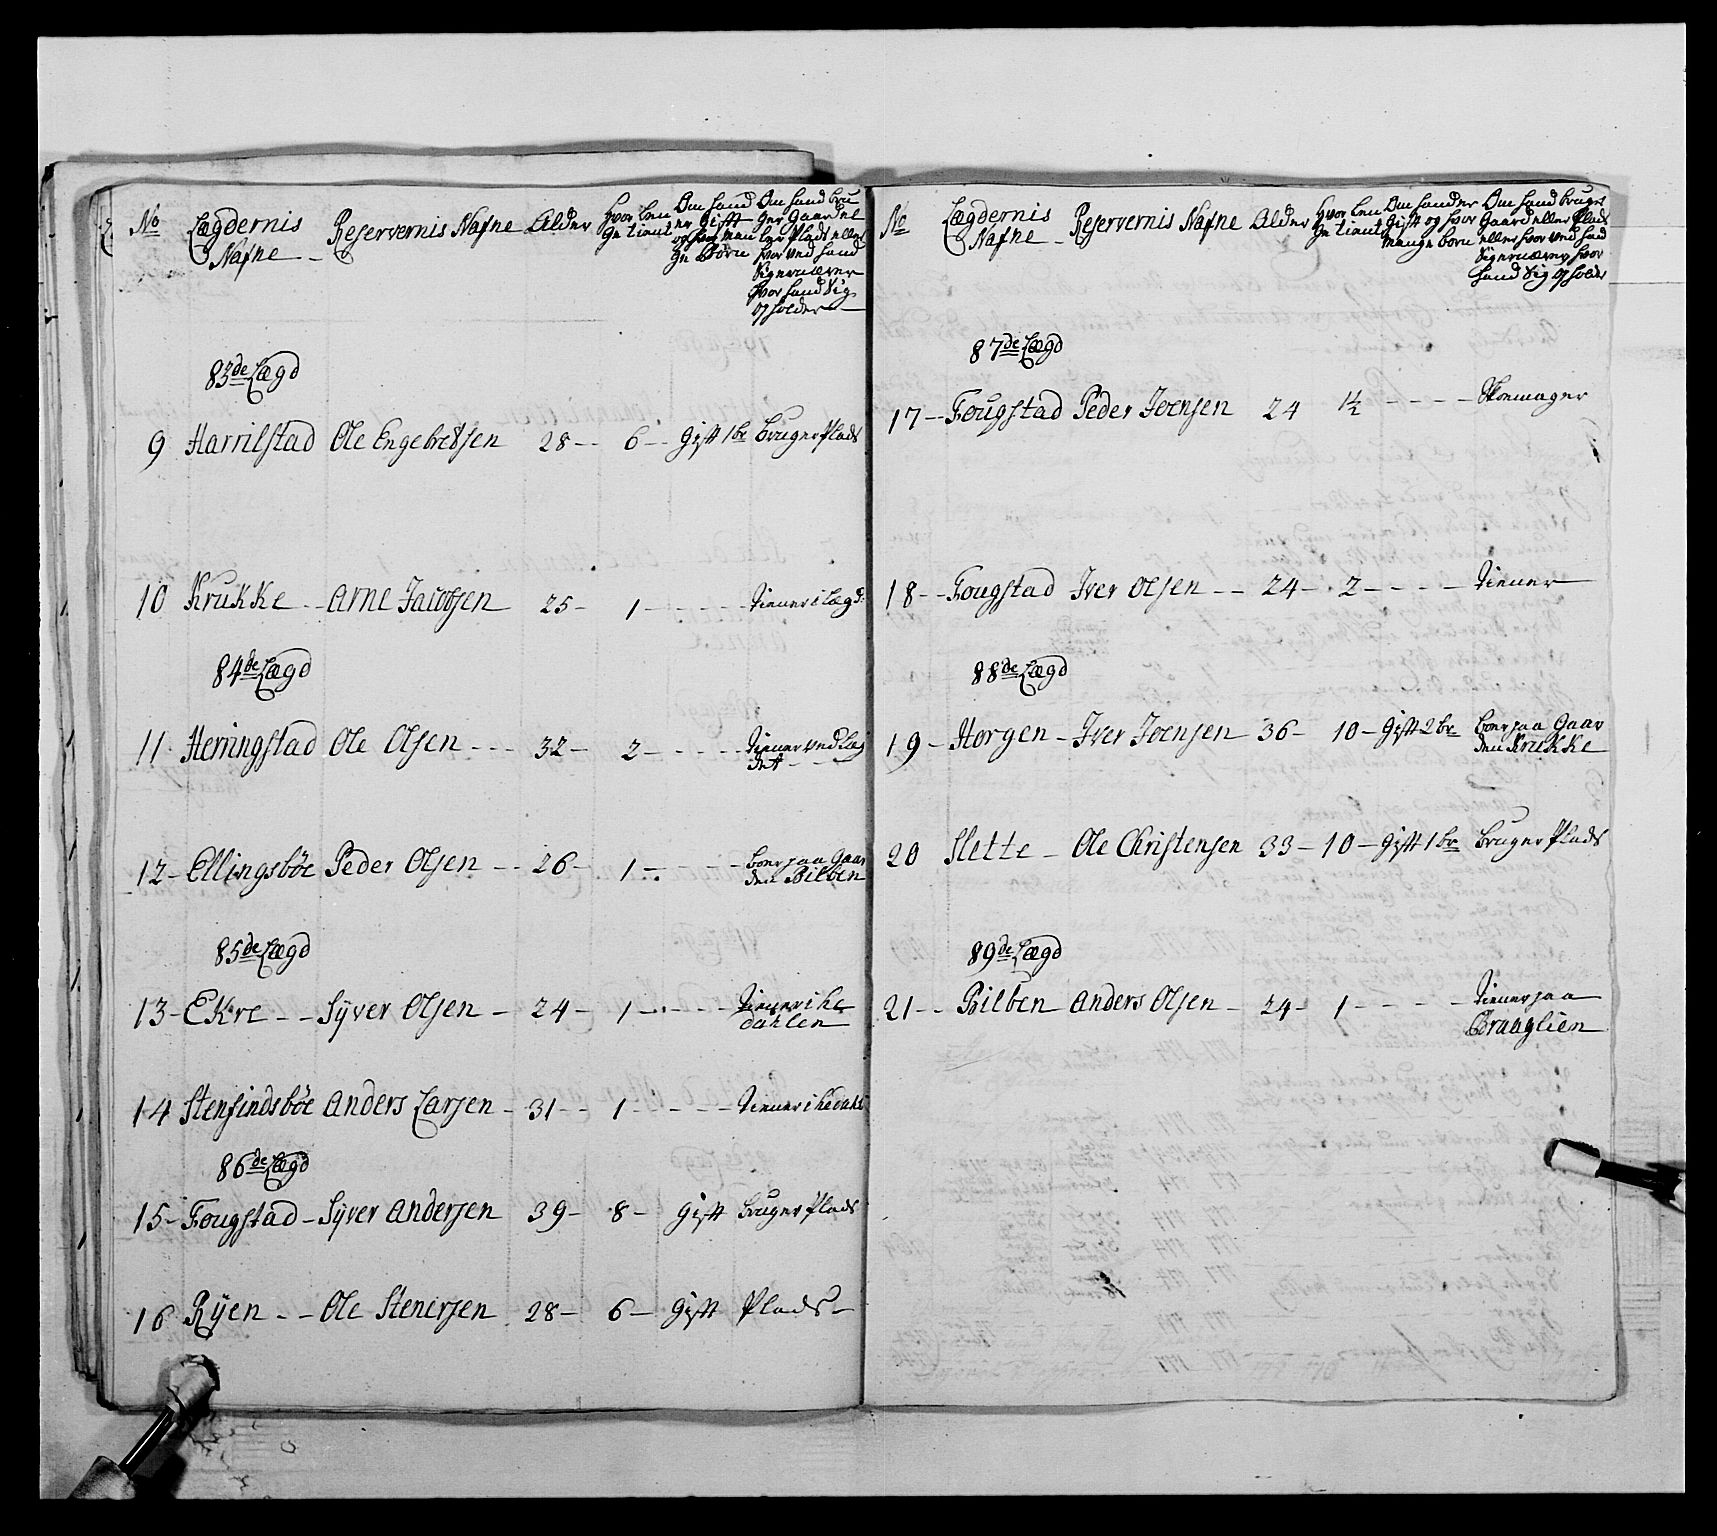 No Lægdernis Nafne Reservernis Nafne Alder Hvor længe tient Om hand er Gift og hvor mange Børn Om hand bruger Gaard eller Plads eller hvor ved hand Sig ernærer hvor hand Sig opholder
83de Lægd
9 Harrilstad Ole Engebretsen 28 6 Gift 1 br Bruger Plads
10 Krukke Arne Jacobsen 25 1 tiener i Lægd
84de Lægd
11 Herringstad Ole Olsen 32 2 tiener ved Lægdet
12 Ellingsbøe Peder Olsen 26 1 boer paa Gaarden Bilben
85de Lægd
13 Ekre Syver Olsen 24 1 tiener i Hedahlen
14 Stensindsbøe Anders Larsen 31 1 tiener i Hedahl
86de Lægd
15 Fougstad Syver Andersen 39 8 Gift Bruger Plads
16 Ryen Ole Stenersen 28 6 Gift Plads
No Lægdernis Nafne Reservernis Nafne Alder Hvor længe tient Om hand er Gift og hvor mange børn Om hand bruger Gaard eller Plads eller hvor ved hand Sig ernærer, hvor hand Sig opholder
87de Lægd
17 Fougstad Peder Joensen 24 1½ Skoemager
18 Fougstad Iver Olsen 24 2 tiener
88de Lægd
19 Horgen Iver Joensen 36 10 Gift 2 br boer paa Gaarden Krukke
20 Slette Ole Christensen 33 10 Gift 1 br Bruger Plads
89de Lægd
21 Bilben Anders Olsen 24 1 tiener paa Braaglien